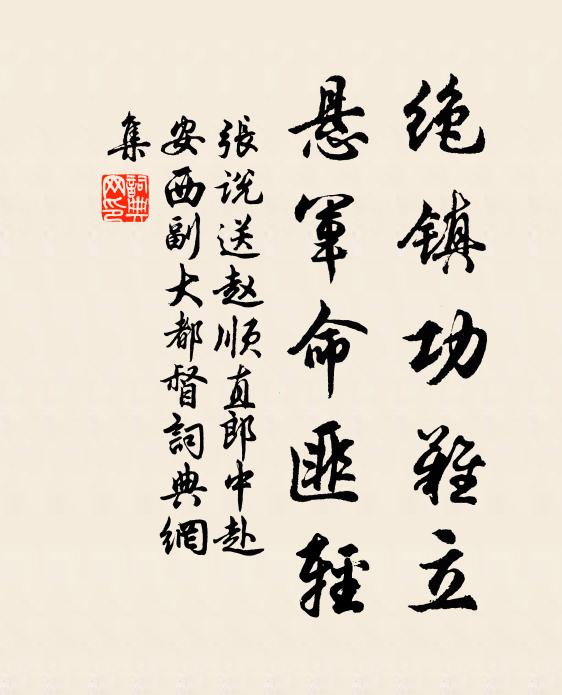 绝镇功难立
悬军命匪轻
張说送赵顺直郎中赴
安西副大都督詞典網
集
詞典
网印